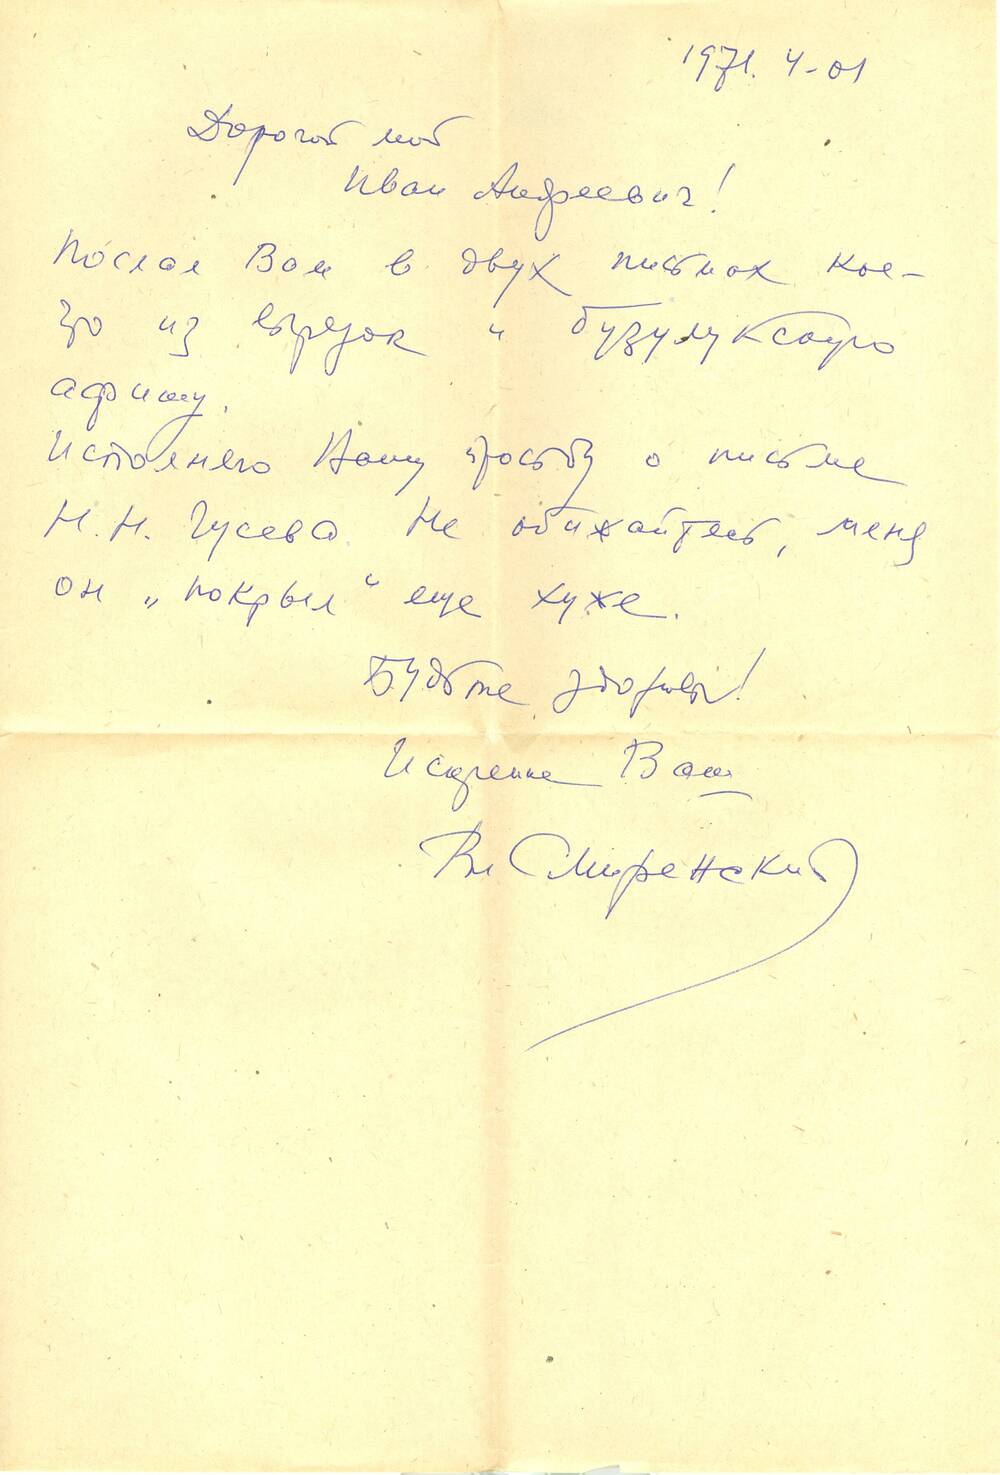 1971. 4-01
Дорогой мой
Иван Андреевич!
Послал Вам в двух письмах кое-
что из вырезок и бузулукскую
афишу.
Исполняю Вашу просьбу о письме
Н.Н. Гусева. Не обижайтесь, меня
он „покрыл“ еще хуже.
Будьте здоровы!
Искренне Ваш
Вл Смиренский